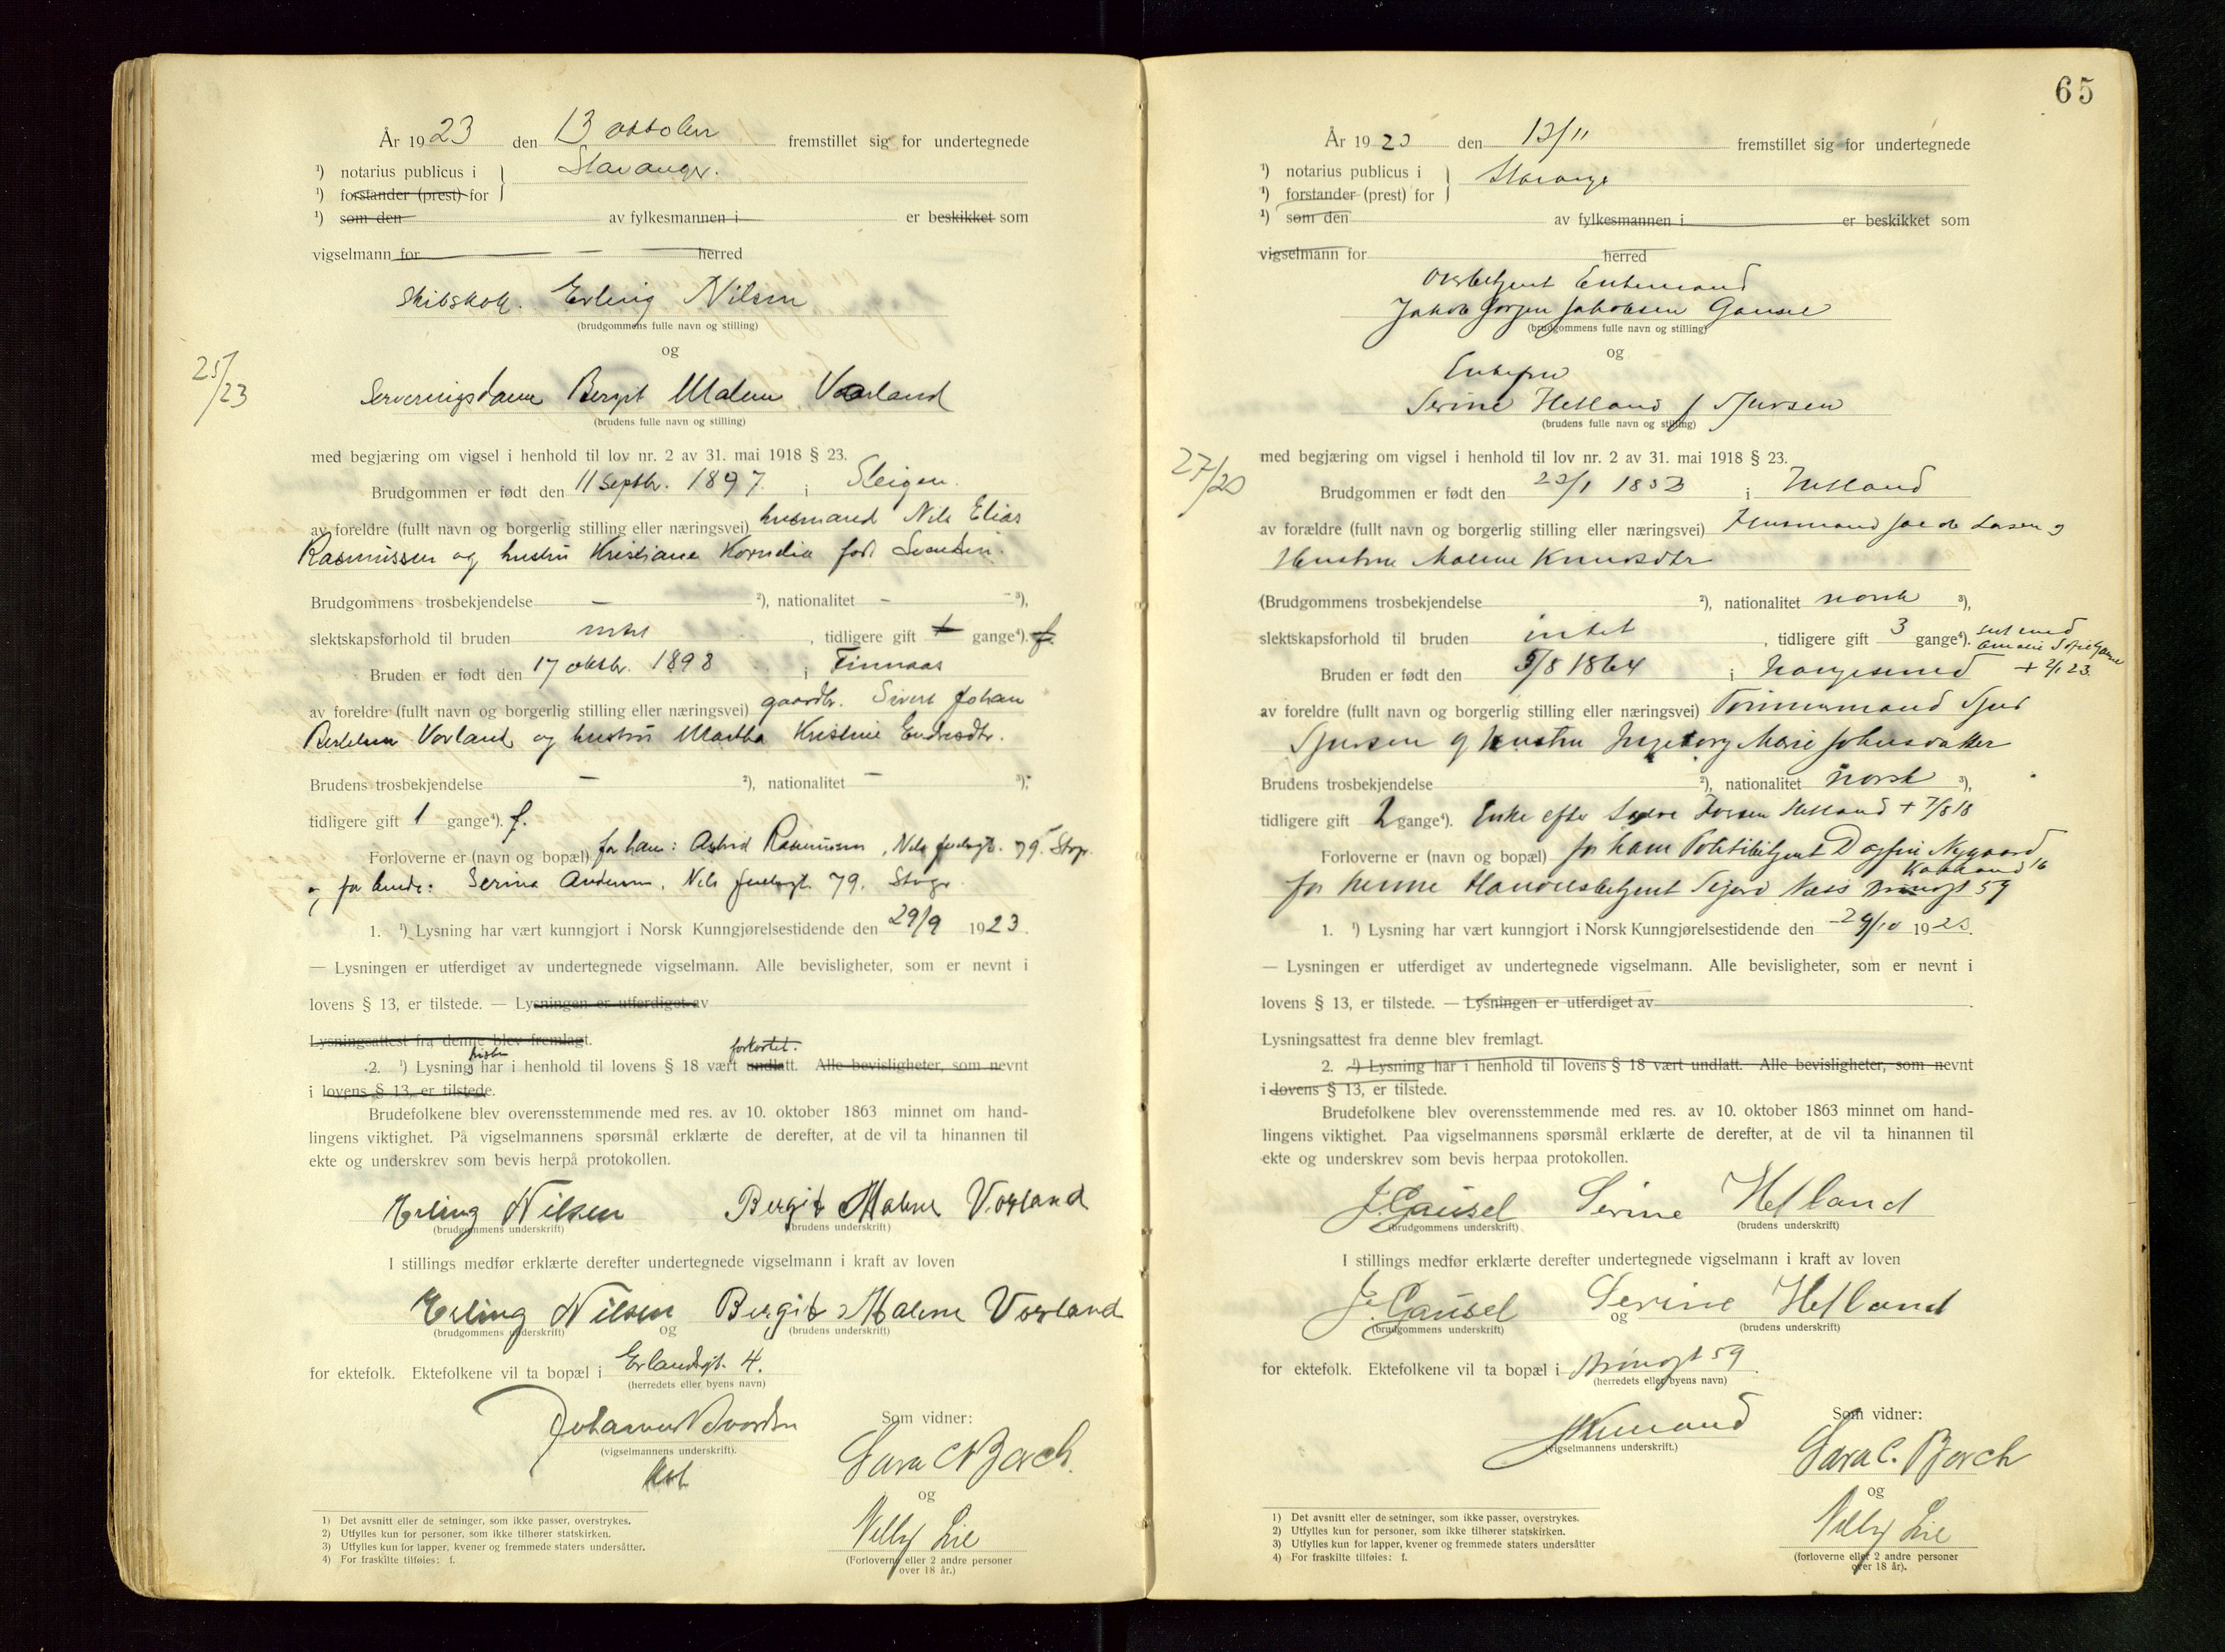 År 1923 den 13 oktober fremstillet sig for undertegnede
¹) notarius publicus i } Stavanger.
¹) forstander (prest) for
¹) som den av fylkesmannen i er beskikket som
vigselmann for herred
Skibskok. Erling Nilsen
(brudgommens fulle navn og stilling)
og
25/23
Serveringsdame Bergit Malene Vorland
(brudens fulle navn og stilling)
med begjæring om vigsel i henhold til lov nr. 2 av 31. mai 1918 § 23.
Brudgommen er født den 11 Septbr. 1897. i Steigen.
av foreldre (fullt navn og borgerlig stilling eller næringsvei) husmand Nils Elias
Rasmussen og hustru Kristiane Kornelia født
Brudgommens trosbekjendelse — ²), nationalitet – ³),
slektskapsforhold til bruden intet , tidligere gift 1 gange⁴). f.
Bruden er født den 17 oktbr. 1898 i Finnaas
av foreldre (fullt navn og borgerlig stilling eller næringsvei) gaardbr. Sivert Johan
Vorland og hustru Martha Kristine Endresdtr.
Brudens trosbekjendelse — ²), nationalitet — ³);
tidligere gift 1 gange⁴). f.
Forloverne er (navn og bopæl) for ham: Astrid Rasmussen, Nils Juelsgt. 79. Stvgr
og for hende: Serina Andersen, Nils Juelsgt. 79. Stvgr
1. ¹) Lysning har vært kunngjort i Norsk Kunngjørelsestidende den 29/9 1923.
— Lysningen er utferdiget av undertegnede vigselmann. Alle bevisligheter, som er nevnt i
lovens § 13, er tilstede. — Lysningen er utferdiget av
Lysningsattest fra denne blev fremlagt.
2. ¹) Lysnings fristen har i henhold til lovens § 18 vært undlatt. forkortet. Alle bevisligheter, som nevnt
i lovens § 13, er tilstede.
Brudefolkene blev overensstemmende med res. av 10. oktober 1863 minnet om hand-
lingens viktighet. På vigselmannens spørsmål erklærte de derefter, at de vil ta hinannen til
ekte og underskrev som bevis herpå protokollen.
Erling Nilsen Bergit Malene Vorland
(brudgommens underskrift) (brudens underskrift)
I stillings medfør erklærte derefter undertegnede vigselmann i kraft av loven
Erling Nilsen og Bergit Malene Vorland
(brudgommens underskrift) (brudens underskrift)
for ektefolk. Ektefolkene vil ta bopæl i Erlandsgt. 4.
(herredets eller byens navn)
(vigselmannens underskrift).
Som vidner:
Sara C Borch.
og
Nelly Lie
(Forloverne eller 2 andre personer
over 18 år.)
1) Det avsnitt eller de setninger, som ikke passer, overstrykes.
2) Utfylles kun for personer, som ikke tilhører statskirken.
3) Utfylles kun for lapper, kvener og fremmede staters undersåtter.
4) For fraskilte tilføies: f.
65
År 1923 den 13/11 fremstillet sig for undertegnede
¹) notarius publicus i } Stavanger
¹) forstander (prest) for
¹) som den av fylkesmannen i er beskikket som
vigselmann for herred
Overbetjent Enkemand
Jakob Jørgen Jakobsen Gausel
(brudgommens fulle navn og stilling)
og
Enkefru
Serine Helland f Sjursen
(brudens fulle navn og stilling)
27/23
med begjæring om vigsel i henhold til lov nr. 2 av 31. mai 1918 § 23.
Brudgommen er født den 23/1 1853 i Hetland
av forældre (fullt navn og borgerlig stilling eller næringsvei) Husmand Jacob Larsen og
Hustru Malene Knudsdtr
(Brudgommens trosbekjendelse ²), nationalitet norsk ³),
slektskapsforhold til bruden intet , tidligere gift 3 gange⁴). sist med
Amalie Sofie Gausel
Bruden er født den 5/8 1864 i Haugesund + 2/1 23.
av foreldre (fullt navn og borgerlig stilling eller næringsvei) Tømmermand Sjur
Sjursen og hustru Ingeborg Marie Johnsdatter
Brudens trosbekjendelse ²), nationalitet norsk ³),
tidligere gift 2 gange⁴). Enke efter Helland + 7/8 18
Forloverne er (navn og bopæl) for ham Politibetjent Dagfin Nygaard
16
for henne Handelsbetjent Sigurd Næss 59
1. ¹) Lysning har vært kunngjort i Norsk Kunngjørelsestidende den 29/10 1923.
— Lysningen er utferdiget av undertegnede vigselmann. Alle bevisligheter, som er nevnt i
lovens § 13, er tilstede. — Lysningen er utferdiget av .
Lysningsattest fra denne blev fremlagt.
2. ¹) Lysning har i henhold til lovens § 18 vært undlatt. Alle bevisligheter, som nevnt
i lovens § 13, er tilstede.
Brudefolkene blev overensstemmende med res. av 10. oktober 1863 minnet om hand-
lingens viktighet. Paa vigselmannens spørsmål erklærte de derefter, at de vil ta hinannen til
ekte og underskrev som bevis herpaa protokollen.
J. Gausel Serine Helland
(brudgommens underskrift) (brudens underskrift)
I stillings medfør erklærte derefter undertegnede vigselmann i kraft av loven
J. Gausel og Serine Helland
(brudgommens underskrift) (brudens underskrift)
for ektefolk. Ektefolkene vil ta bopæl i 59
(herredets eller byens navn)
(vigselmannens underskrift.)
Som vidner:
Sara C. Borch
og
Nelly Lie
(forloverne eller 2 andre personer
over 18 år).
1) Det avsnitt eller de setninger, som ikke passer, overstrykes.
2) Utfylles kun for personer, som ikke tilhører statskirken.
3) Utfylles kun for lapper, kvener og fremmede staters undersåtter
4) For fraskilte tilføies: f.